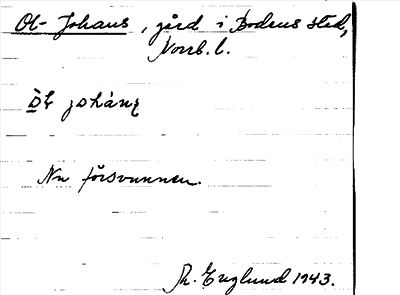 Ol-Johans, gård i Bodens stad,
Norrb. l.
Nu försvunnen.
Th. Englund 1943.